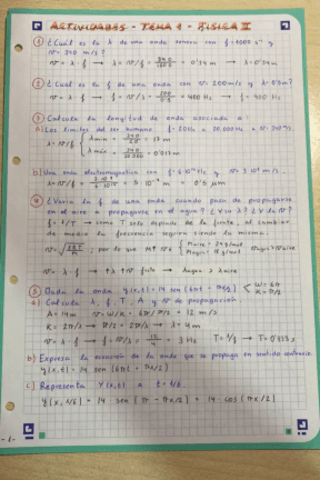 ACTIVIDADES - TEMA 1 - FÍSICA II
① ¿Cuál es la λ de una onda sonora con f=1000 s⁻¹ y
v= 340 m/s?
v = λ · f → λ = v/f = 340/1000 = 0'34 m → λ=0'34m
② ¿Cuál es la f de una onda con v= 200m/s y λ=0'5m?
v = λ · f → f = v/λ = 200/0'5 = 400 Hz → f = 400 Hz
③ Calcula la longitud de onda asociada a:
a) Los límites del ser humano. f: 20Hz a 20.000Hz v= 340 m/s.
λ= v/f { λmax = 340/20 = 17 m
λmin = 340/20.000 = 0'017 m
b) Una onda electromagnética con f= 6·10¹⁴ Hz y v= 3·10⁸ m/s.
λ=v/f = 3·10⁸/6·10¹⁴ = 5·10⁻⁷ m = 0'5 μm
④ ¿Varía la f de una onda cuando pasa de propagarse
en el aire a propagarse en el agua? ¿Y su λ? ¿Y la v?
f= 1/T → como T solo depende de la fuente, al cambiar
de medio la frecuencia seguirá siendo la misma.
v ↑ λ ↑ v f cte → λagua > λaire
⑤ Dada la onda y(x,t) = 14 sen (6πt + πx/2) < W= 6π
K= π/2
a) Calcula λ, f, T, A y v de propagación.
A= 14m v= W/K = 6π/π/2 = 12 m/s
K= 2π/λ → π/2 = 2π/λ → λ= 4m
v= λ · f → f= v/λ = 12/4 = 3 Hz T= 1/f → T= 0'333 s
b) Expresa la ecuación de la onda que se propaga en sentido contrario.
y(x,t) = 14 sen (6πt - πx/2)
c) Representa Y(x,t) a t = 1/6.
y(x,1/6) = 14 · sen (π - πx/2) = 14 · cos (πx/2)
-1-